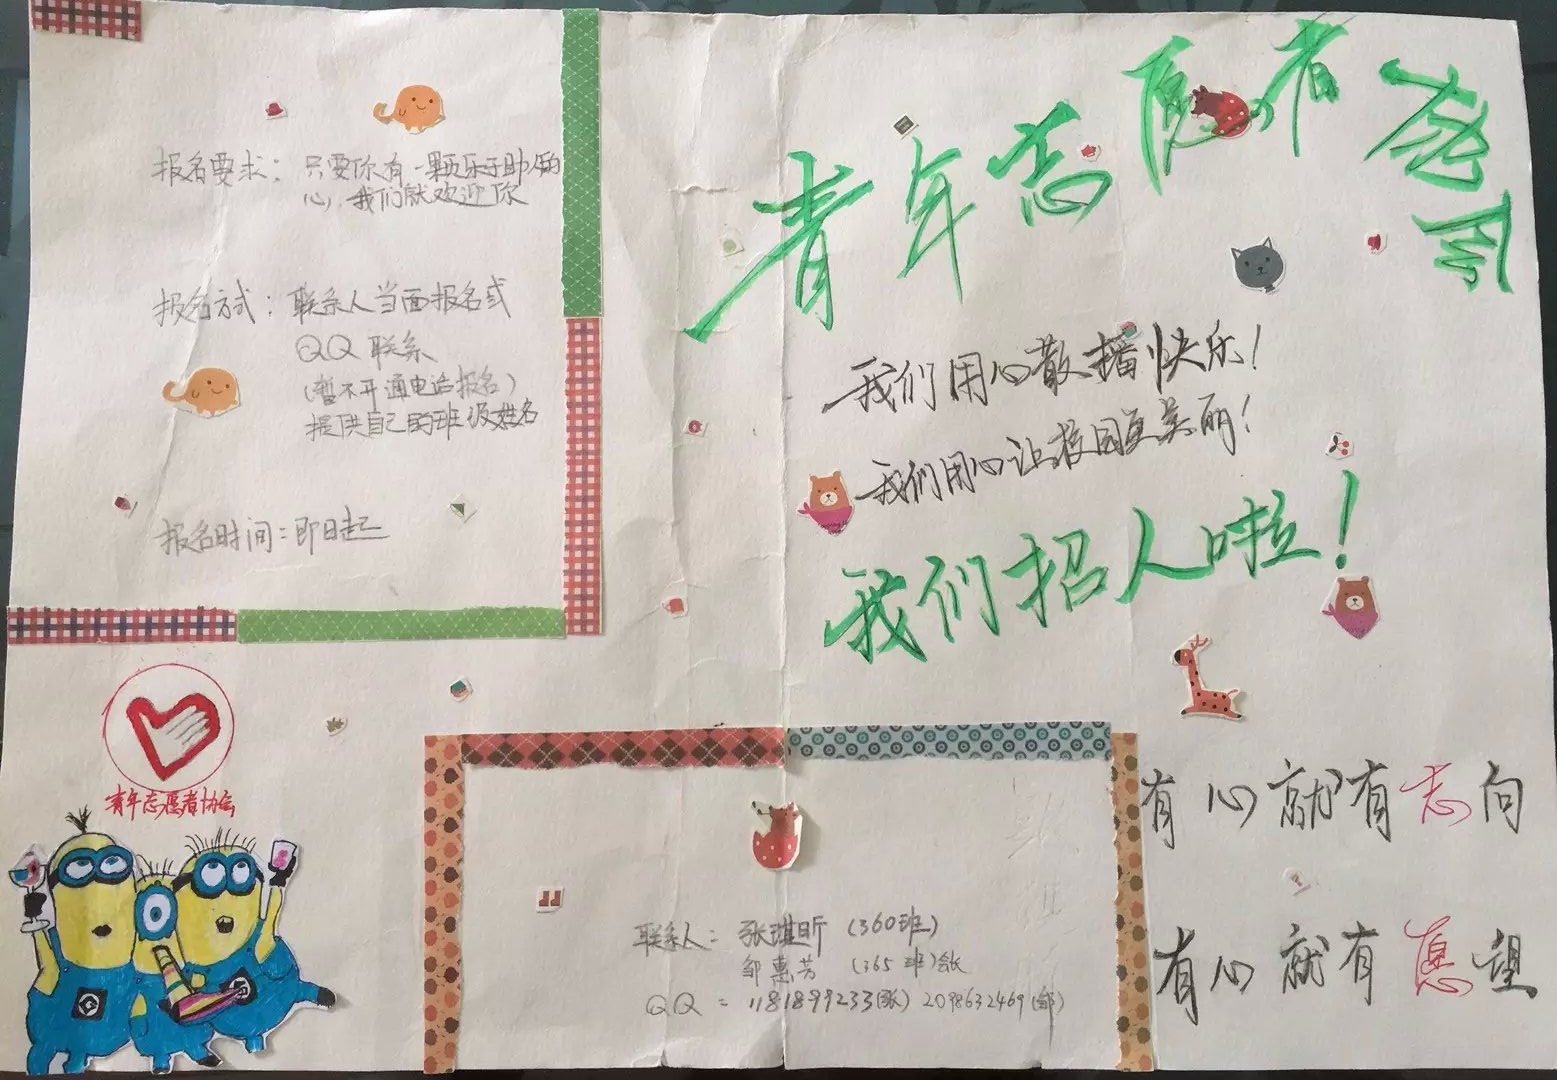 报名要求：只要你有一颗乐于助人的
心，我们就欢迎你
报名方式：联系人当面报名或
QQ 联系
(暂不开通电话报名)
提供自己的班级姓名
报名时间：即日起
青年志愿者协会
青年志愿者协会
我们用心散播快乐！
我们用心让校园更美丽！
我们招人啦！
有心就有志向
有心就有愿望
联系人：张琪昕 (360班)
邹惠芳 (365班)
QQ：1181899233(张) 2098632469(邹)